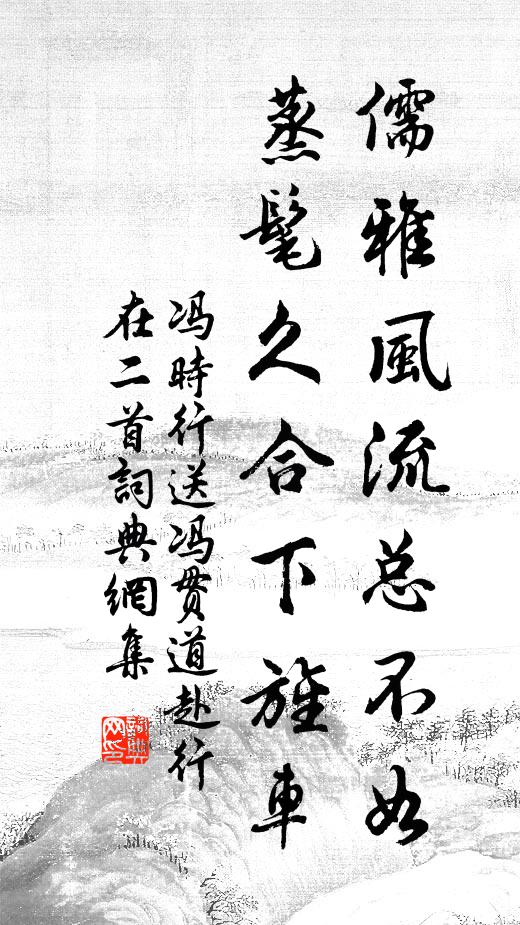 儒雅風流总不如
蒸髦久合下旌車
冯時行送冯貫道赴行
在二首詞典網集